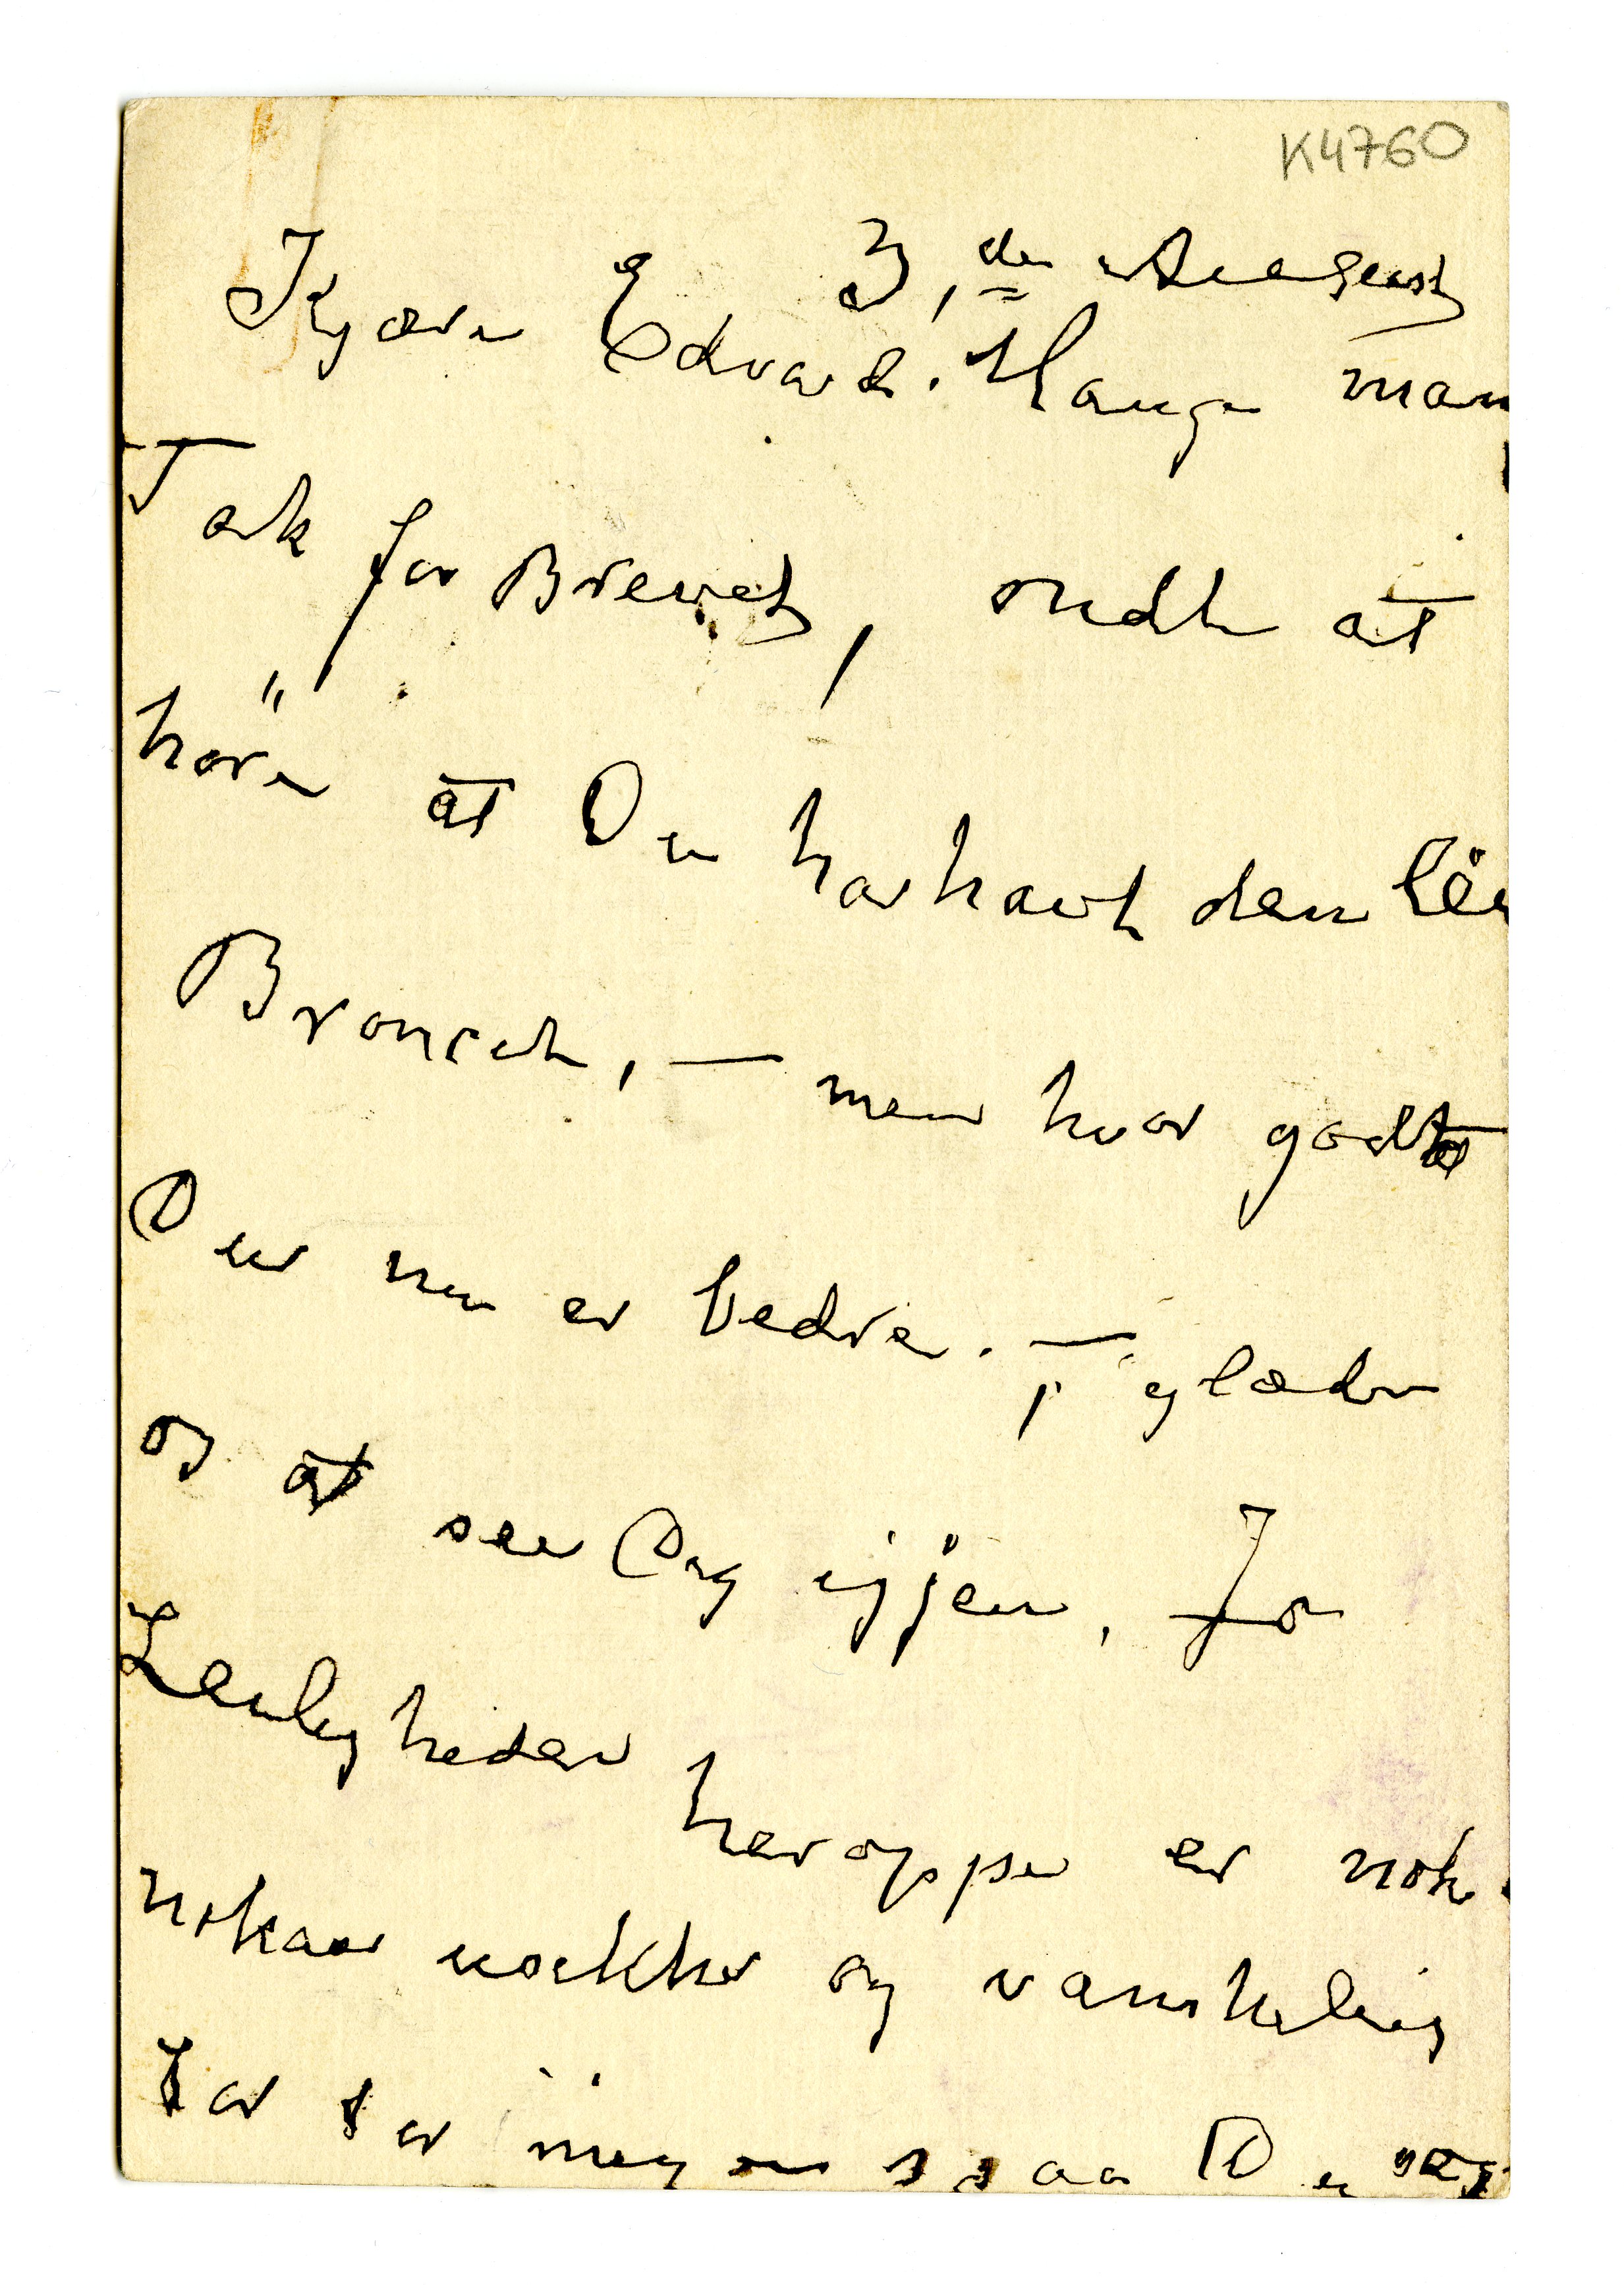 K4760
3, de August
Kjære Edvard. Mange man
Tak for Brevet, ondt at
höre at Du har havt den
Bronsch, — men hvor godt
Du nu er bedre. — glæder
og at see Dig igjen, Ja
Leiligheden heroppe er nok
nokaa og vanskelig
for for mig saa Du